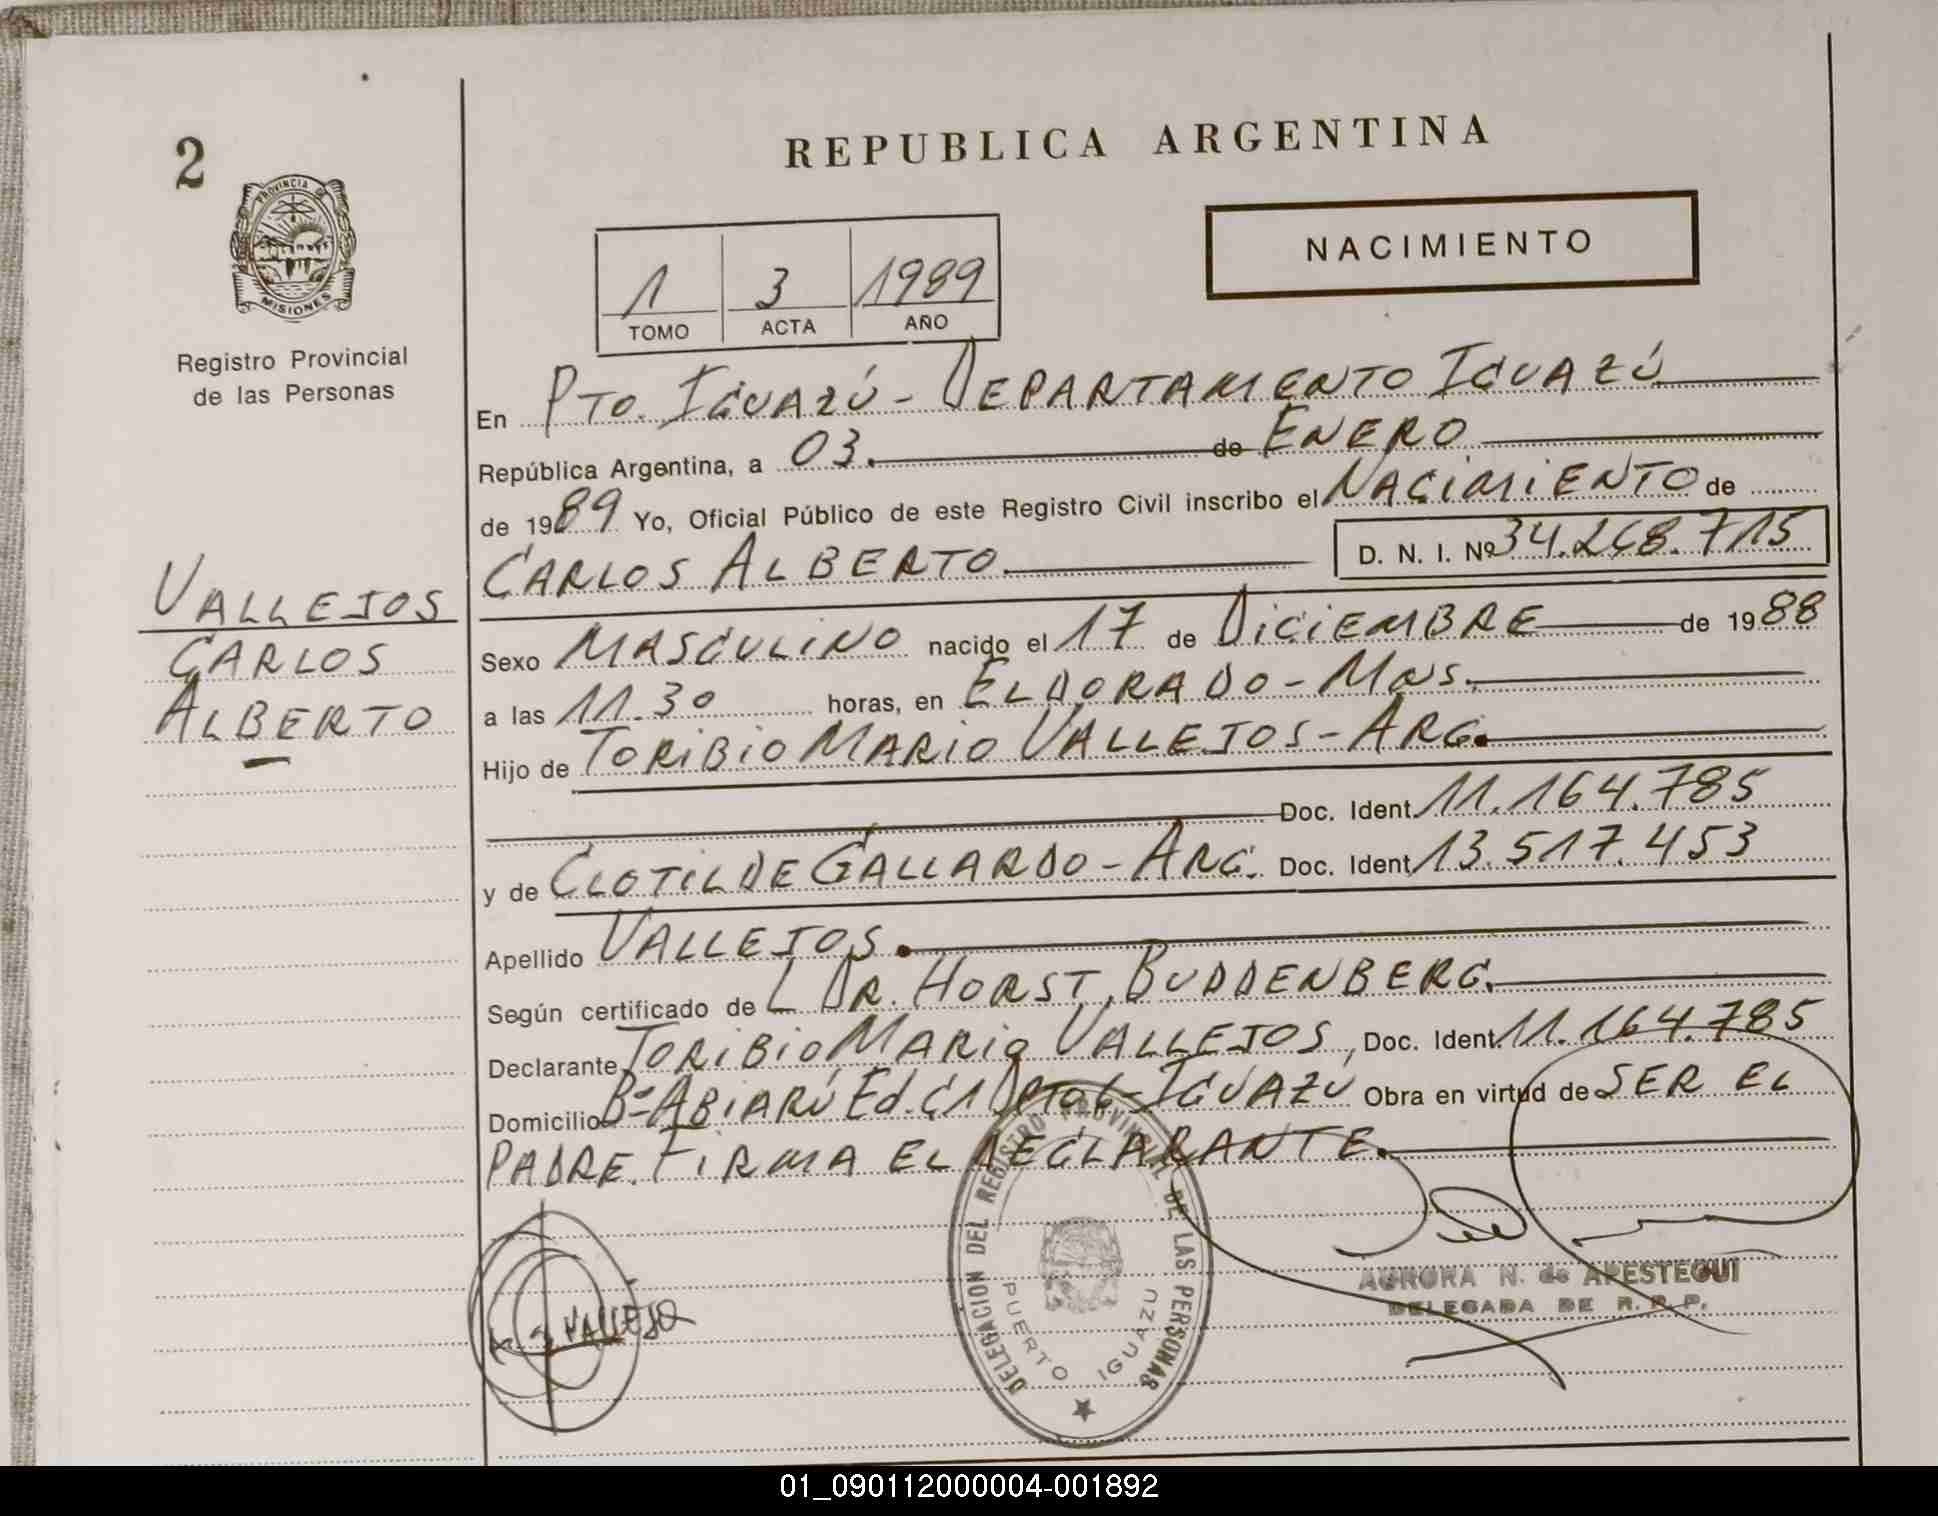 2
REPUBLICA ARGENTINA
PROVINCIA DE
MISIONES
Registro Provincial
de las Personas
1 3 1989
TOMO ACTA AÑO
NACIMIENTO
En PTO. IGUAZÚ - DEPARTAMENTO IGUAZÚ
República Argentina, a 03. de ENERO
de 1989 Yo, Oficial Público de este Registro Civil inscribo el NACIMIENTO de
CARLOS ALBERTO. D. N. I. Nº 34.268.715
VALLEJOS
CARLOS
ALBERTO
Sexo MASCULINO nacido el 17 de DICIEMBRE de 1988
a las 11.30 horas, en ELDORADO - MNS.
Hijo de TORIBIO MARIO VALLEJOS - ARG.
Doc. Ident. 11.164.785
y de CLOTILDE GALLARDO - ARG. Doc. Ident. 13.517.453
Apellido VALLEJOS.
Según certificado de DR. HORST BUDDENBERG.
Declarante TORIBIO MARIO VALLEJOS, Doc. Ident. 11.164.785
Domicilio Bº ABIARÚ Ed. IGUAZÚ Obra en virtud de SER EL
PADRE. FIRMA EL DECLARANTE.
DELEGACION DEL REGISTRO PROVINCIAL DE LAS PERSONAS
PUERTO IGUAZU
VALLEJO
AURORA N. de APESTEGUI
DELEGADA DE R. P. P.
01_090112000004-001892